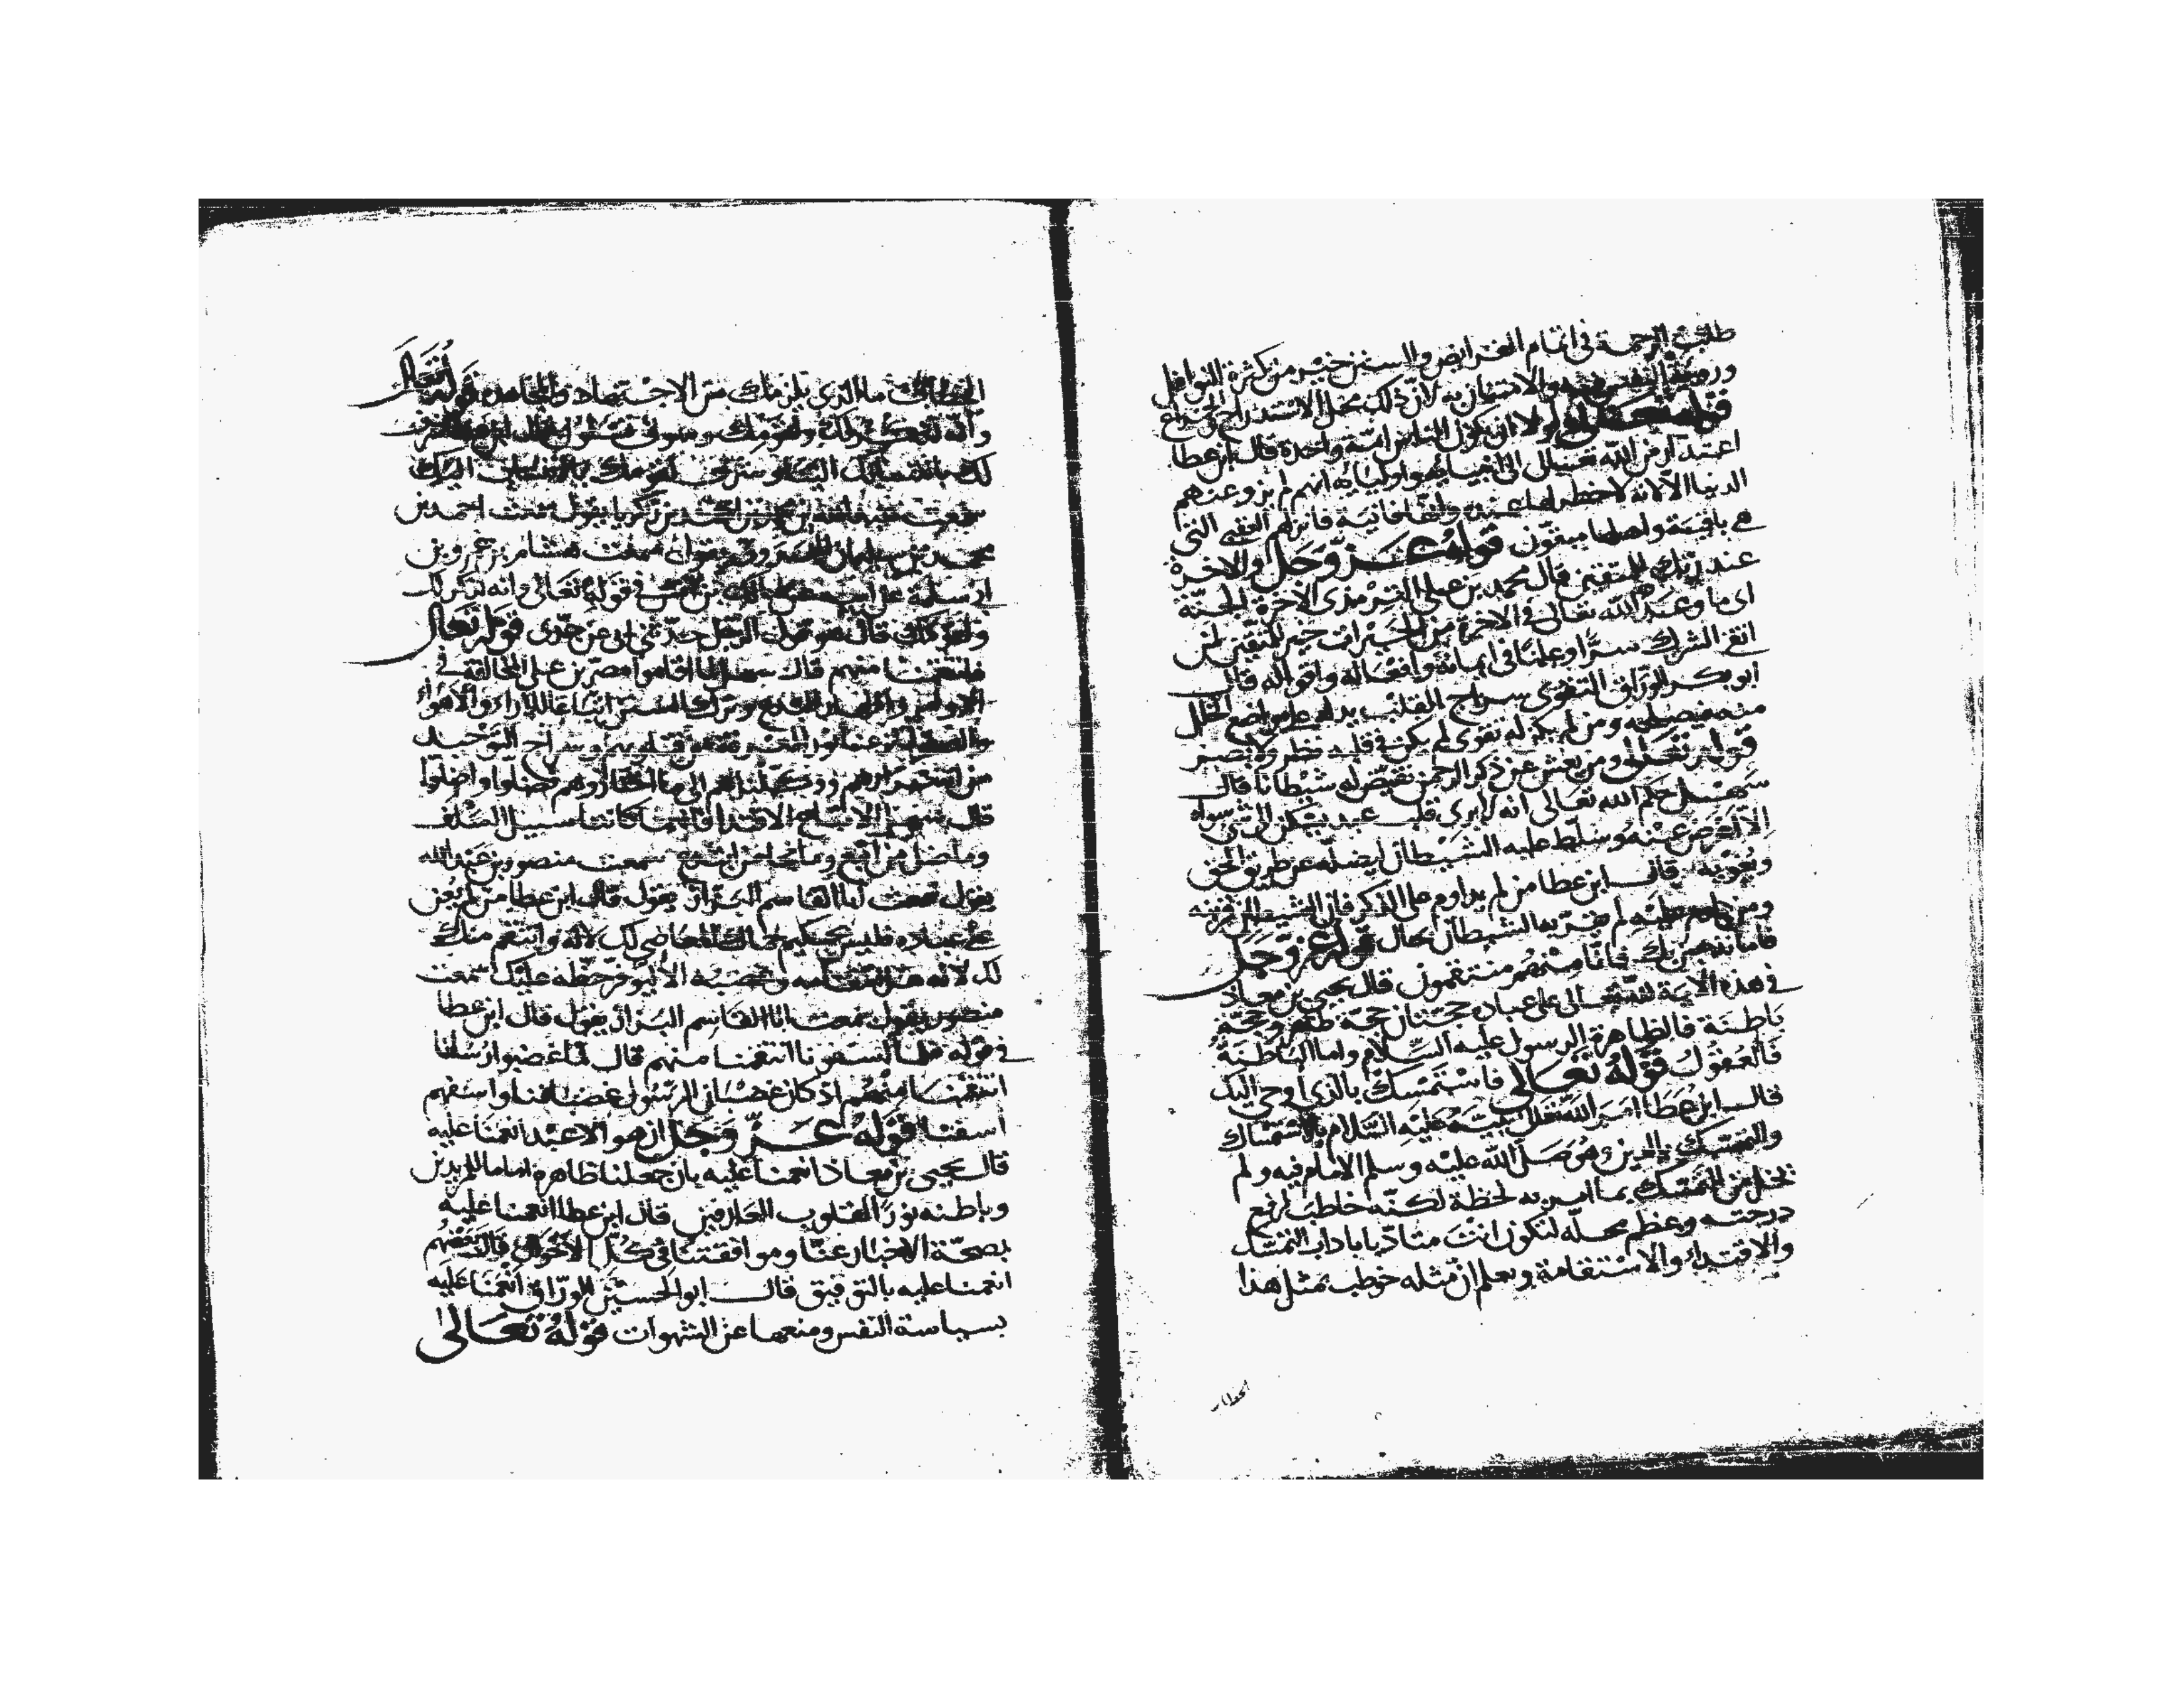 طلب الرحمة في اتمام الفرايض والسنن خير من كثرة النوافل
ورؤية النفس فيه والامتنان به لان ذلك محل الاستدراج والخداع
قوله تعالى ولولا ان يكون الناس امة واحدة قال ابن عطا
اعتذار من الله تعالى الى انبيايه واوليايه انهم لم يزو عنهم
الدنيا الا لانه لا خطر لها عنده وانها فانية فاثر لهم العقبى التي
هي باقية واهلها مبقون قوله عز وجل والاخرة
عند ربك للمتقين قال محمد بن علي الترمذي الاخرة الجنة
اى ما وعد الله تعالى في الاخرة من الخيرات خير للمتقين لمن
اتقى الشرك سرا وعلنا في ايمانه وافعاله واقواله قال
ابو بكر الوراق التقوى سراج القلب يدله على مواضع الخلل
منه فيصلحه ومن لم يكن له تقوى لم يكن في قلبه نظر ولا بصيرة
قوله تعالى ومن يعش عن ذكر الرحمن نقيض له شيطانا قال
سهل حكم الله تعالى انه لا يرى قلب عبد يسكن الى شي سواه
الا اعرض عنه وسلط عليه الشيطان ليضله عن طريق الحق
ويغويه قال ابن عطا من لم يداوم على الذكر فان الشيطان قرينه
ومن داوم عليه لم يقربه الشيطان بحال قوله عز وجل
فاما نذهبن بك فانا منهم منتقمون قال يحيى بن معاذ
في هذه الاية لله تعالى على عباده حجتان حجة ظاهرة وحجة
باطنة فالظاهرة الرسول عليه السلام واما الباطنة
فالعقول قوله تعالى فاستمسك بالذي اوحي اليك
قال ابن عطا امر الله تعالى نبيه عليه السلام بالاستمساك
والتمسك بالدين وهو صلى الله عليه وسلم الامام فيه ولم
يخل من التمسك بما امر به لحظة لكنه خاطب لرفع
درجته وعظم محله لتكون انت متادبا باداب التمسك
والاقتداء والاستقامة ويعلم ان مثله خوطب بمثل هذا
الخطاب
الخطاب ما الذي يلزمك من الاجتهاد والمجاهدة قوله تعالى
وانه لذكر لك ولقومك وسوف تسئلون قال ابن عطا شرف
لك بانتسابك الينا وشرف لقومك بالانتساب اليك
سمعت عبد الله بن محمد بن احمد بن زكريا يقول سمعت احمد بن
محمد بن سليمان يقول سمعت هشام بن عمرو بن
ابي سلمة عن ابيه عن مالك بن انس في قوله تعالى وانه لذكر لك
ولقومك قال هو قول الرجل حدثني ابي عن جدى قوله تعالى
فانتقمنا منهم قال سهل لما اقاموا مصرين على المخالفة في
الاوامر واظهار البدع وترك السنن اتباعا للاراء والاهواء
والعقول نزعنا نور المعرفة من قلوبهم وسراج التوحيد
من اسرارهم ووكلناهم الى ما اختاروهم فضلوا واضلوا
قال سهل الاتباع الاقتدا وانهما كانتا سبيل السلف
وما ضل من اتبع وما نجا من ابتدع سمعت منصور بن عبد الله
يقول سمعت ابا القاسم البزاز يقول قال ابن عطا من لم يغن
على عباده فليس بحكيم
لك لانه عليك سمعت
منصور يقول سمعت ابا القاسم البزاز يقول قال ابن عطا
في قوله فلما اسفونا انتقمنا منهم قال لما اغضبوا رسلنا
انتقمنا منهم اذ كان غضبان الرسول غضبا لنا واسفهم
اسفنا قوله عز وجل ان هو الا عبد انعمنا عليه
قال يحيى بن معاذ انعمنا عليه بان جعلنا ظاهره اماما للمريدين
وباطنه نورا لقلوب العارفين قال ابن عطا انعمنا عليه
بصحة الاخبار عنا وموافقتنا في كل الاحوال قال بعضهم
انعمنا عليه بالتوفيق قال ابو الحسين الوراق انعمنا عليه
بسياسة النفس ومنعها عن الشهوات قوله تعالى